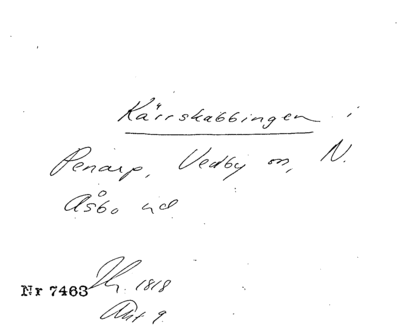 Kärrskabbingen i
Penarp, Vedby sn, N.
Åsbo hd
1818
Nr 7463
Akt 9